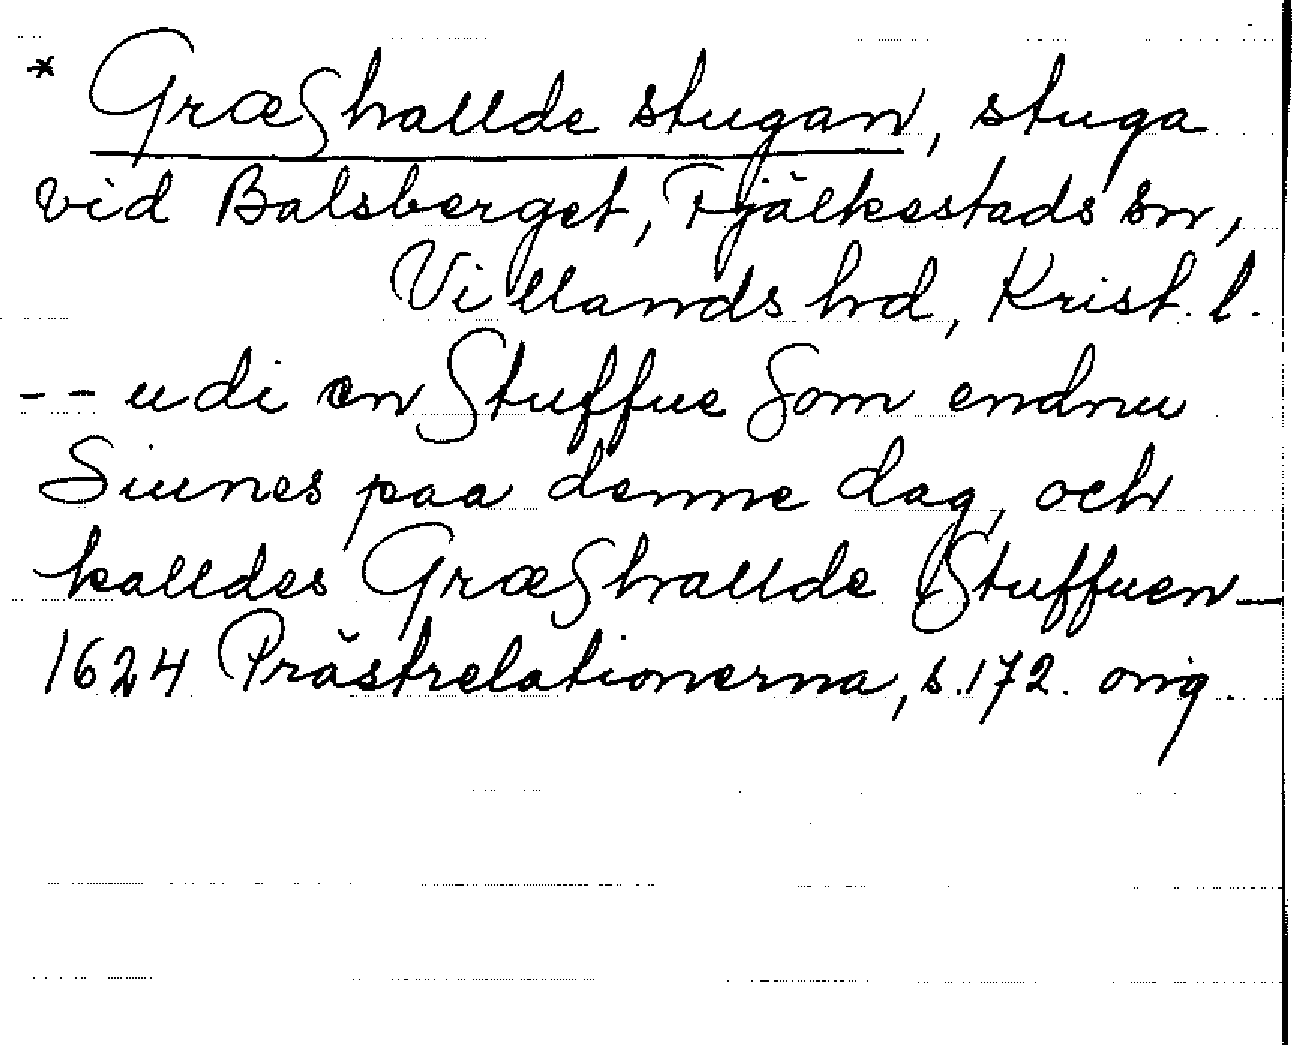 * GræShallde stugan, stuga
vid Balsberget, Fjälkestads sn,
Villands hd, Krist. l.
-- udi en Stuffue Som endnu
Siunes paa denne dag, och
kalldes GræShallde Stuffuen—
1624 Prästrelationerna, s. 172. orig.